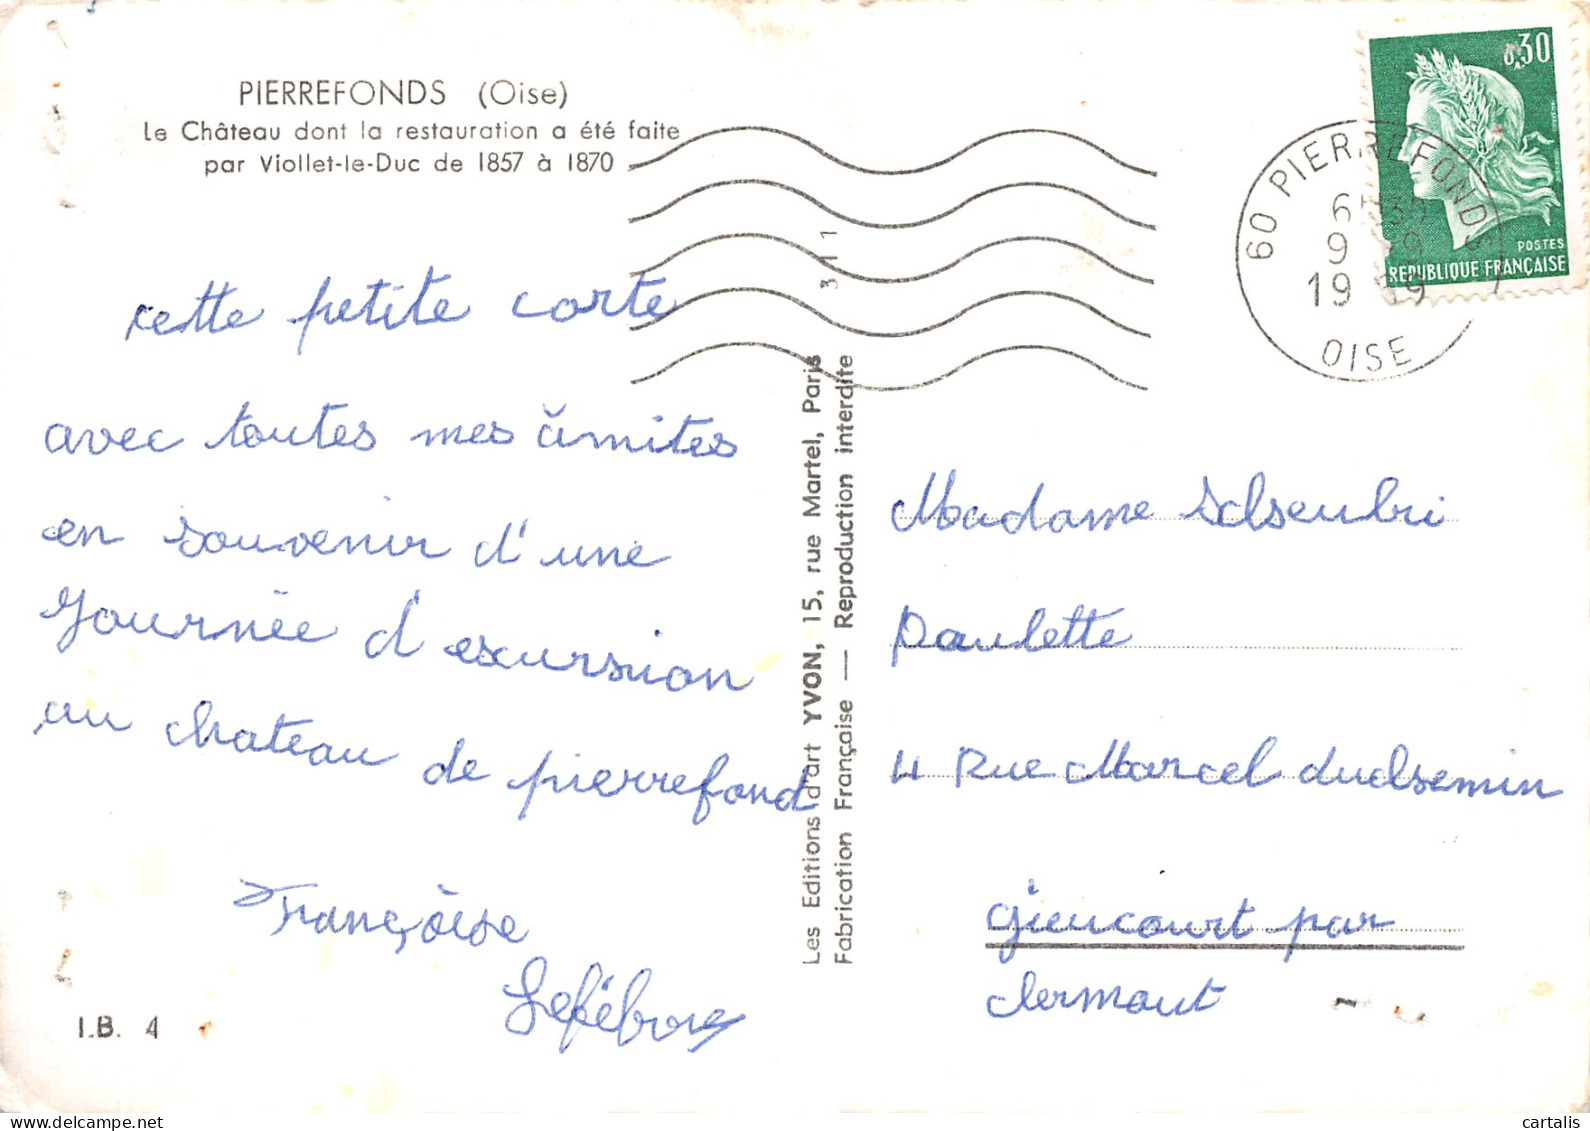 PIERREFONDS (Oise)
Le Château dont la restauration a été faite
par Viollet-le-Duc de 1857 à 1870
cette petite carte
avec toutes mes amites
en souvenir d'une
Journée d'escursion
au chateau de pierrefond
Françoise
Lefébvre
I.B. 4
Les Editions d'art YVON, 15, rue Martel, Paris
Fabrication Française — Reproduction interdite
311
60 PIERREFONDS
OISE
0,30
POSTES
REPUBLIQUE FRANÇAISE
Madame
Paulette
4 Rue Marcel duclsemin
Giencourt par
clermont
delcampe.net
cartalis